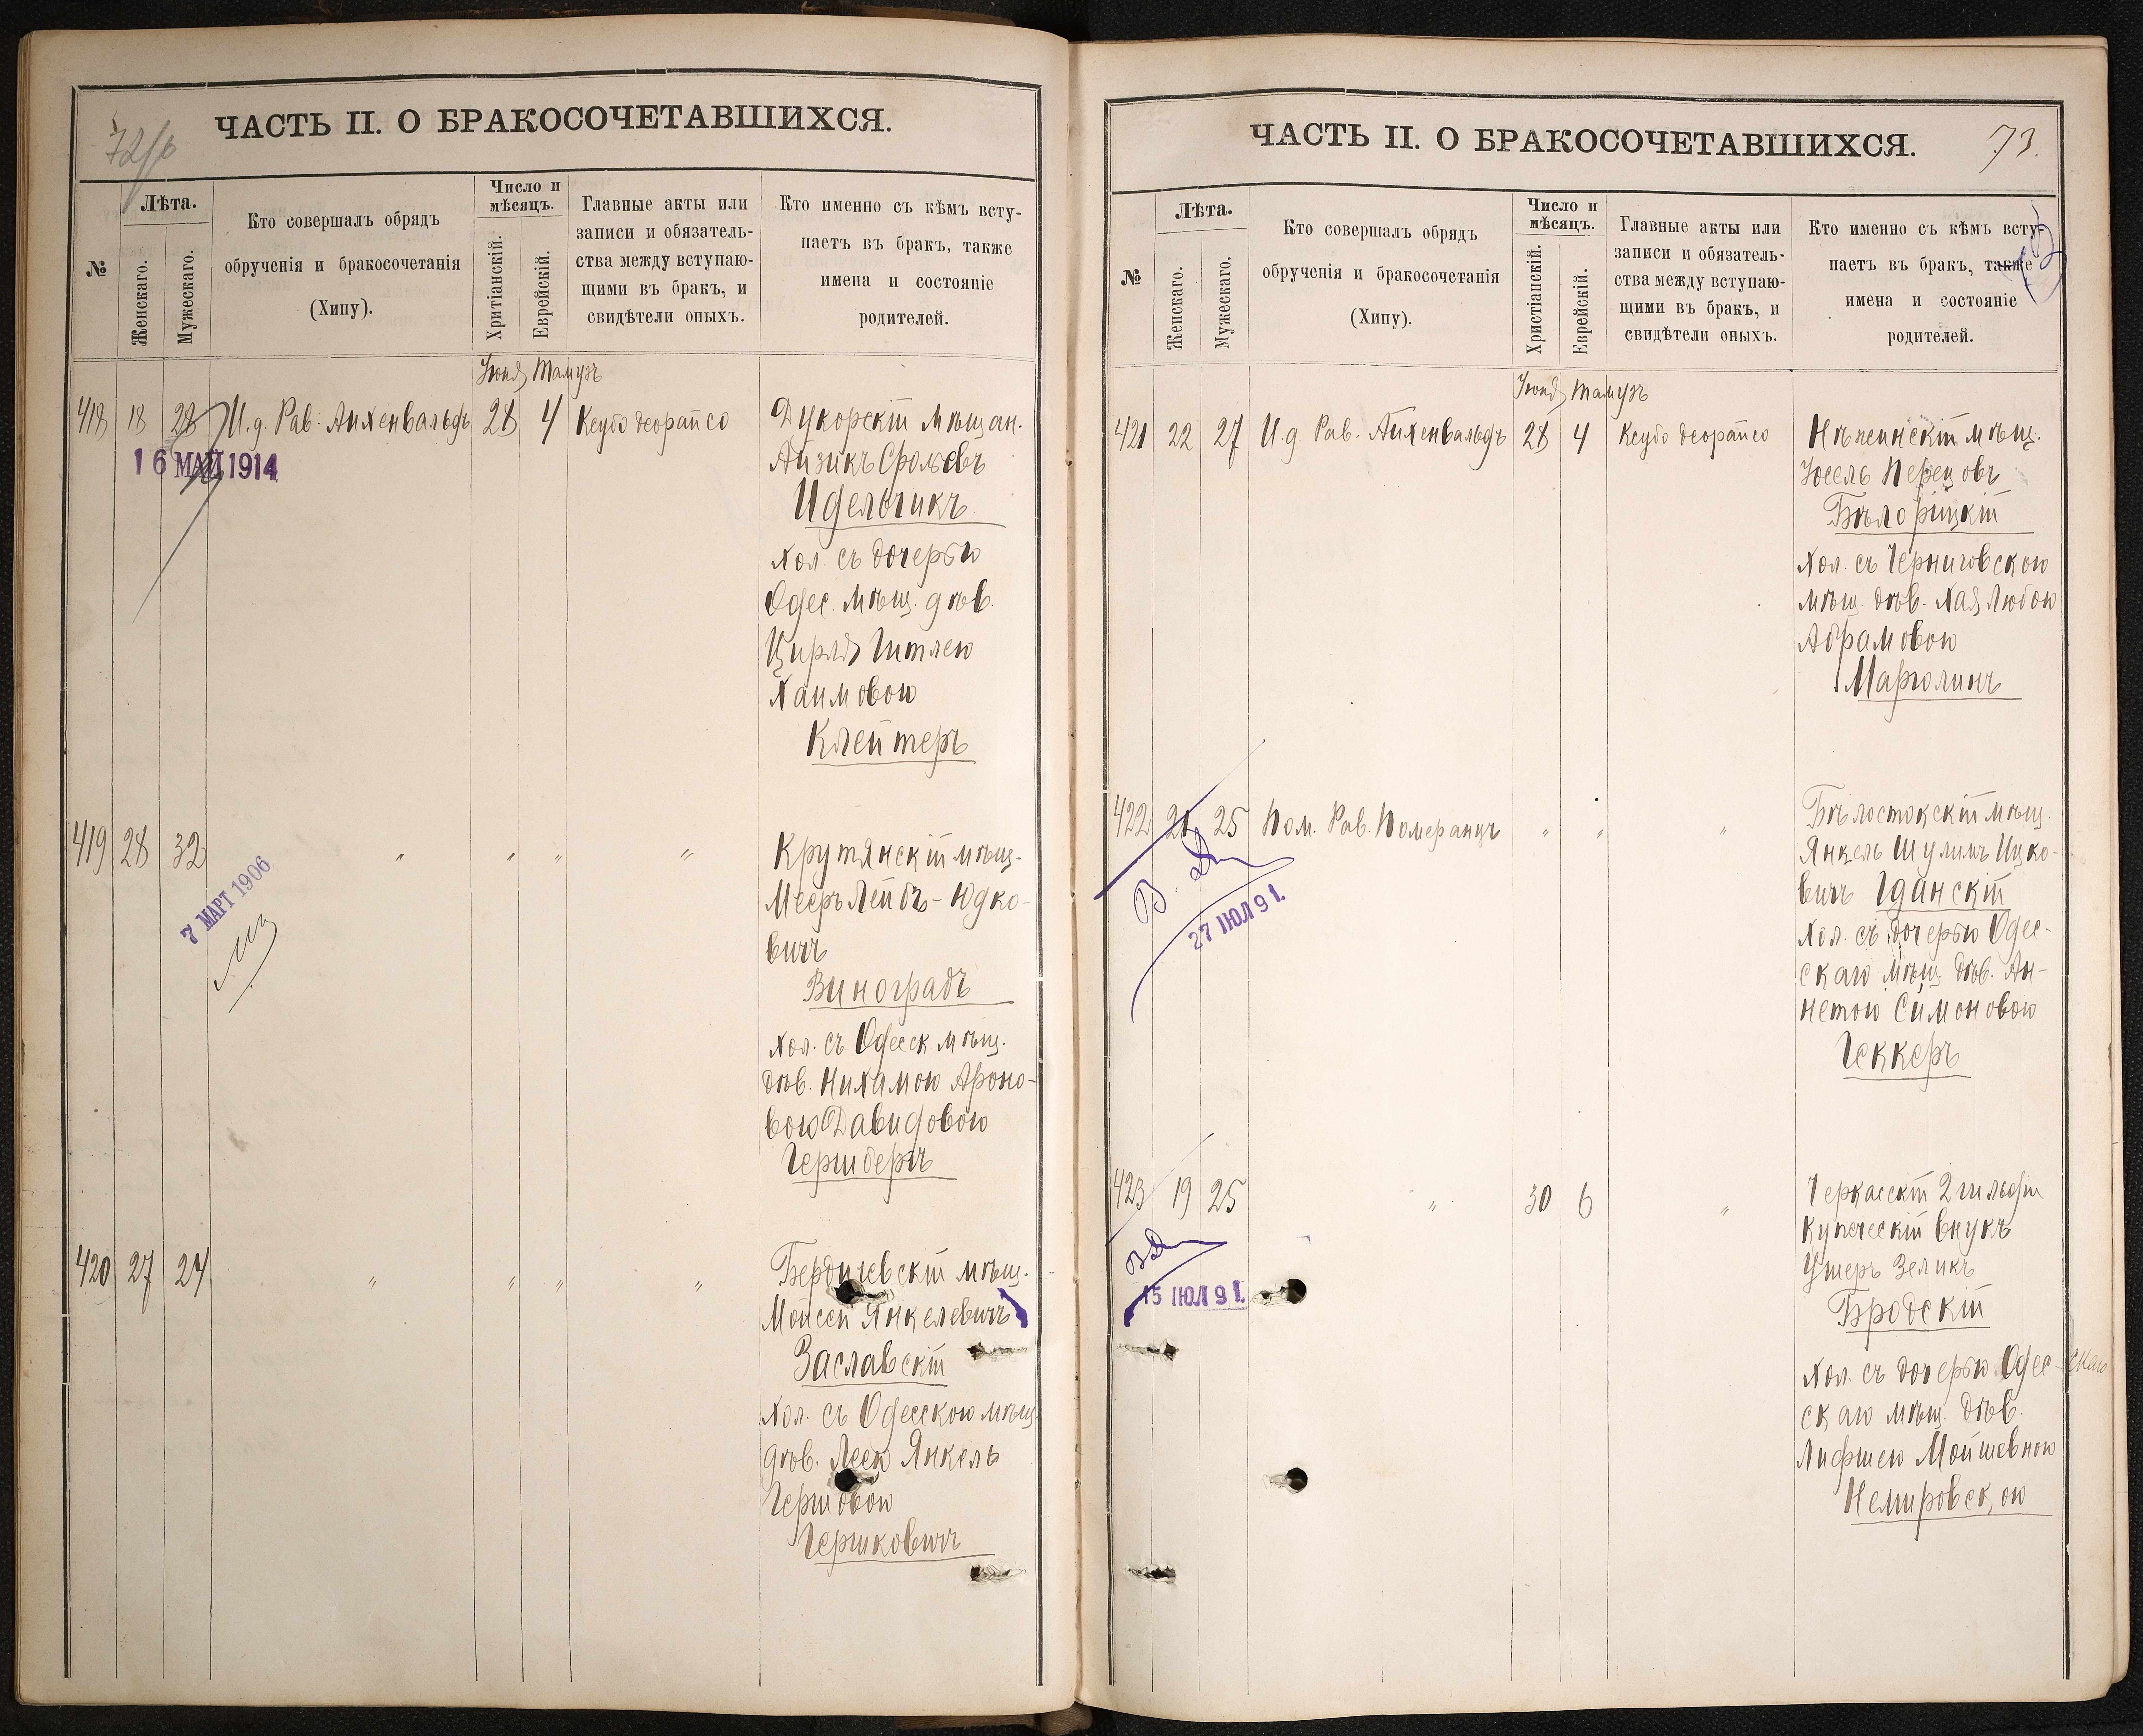 72/б
ЧАСТЬ II. О БРАКОСОЧЕТАВШИХСЯ.
№
Лѣта.
Женскаго.
Мужескаго.
Кто совершалъ обрядъ
обрученія и бракосочетанія
(Хипу).
Число и
мѣсяцъ.
Хритіанскій.
Еврейскій.
Главные акты или
записи и обязатель-
ства между вступаю-
щими въ бракъ, и
свидѣтели оныхъ.
Кто именно съ кѣмъ всту-
паетъ въ бракъ, также
имена и состояніе
родителей.
Іюня Тамузъ
418 18 28 И.д. Рав. Айхенвальдъ 28 4 Кеубо деорайсо
Дукорскій мѣщан.
Айзикъ Срольевъ
Идельчикъ
хол. съ дочерью
Одес. мѣщ. дѣв.
Цирля Гитлею
Хаимовою
Клейтеръ
16 МАЙ 1914
419 28 32 " " " "
Крутянскій мѣщ.
Мееръ Лейбъ-Юдко-
вичъ
Виноградъ
хол. съ Одесск мѣщ.
дѣв. Нихамою Ароно-
вою Давидовою
Гершбергъ
7 МАРТ 1906
420 27 24 " " " "
Бердичевскій мѣщ.
Моисей Янкелевичъ
Заславскій
хол. съ Одесскою мѣщ
дѣв. Леею Янкель
Гершовою
Гершковичъ
ЧАСТЬ II. О БРАКОСОЧЕТАВШИХСЯ.
73.
№
Лѣта.
Женскаго.
Мужескаго.
Кто совершалъ обрядъ
обрученія и бракосочетанія
(Хипу).
Число и
мѣсяцъ.
Христіанскій.
Еврейскій.
Главные акты или
записи и обязатель-
ства между вступаю-
щими въ бракъ, и
свидѣтели оныхъ.
Кто именно съ кѣмъ всту-
паетъ въ бракъ, также
имена и состояніе
родителей.
Іюня Тамузъ
421 22 27 И.д. Рав. Айхенвальдъ 28 4 Кеубо деорайсо
Нѣжинскій мѣщ.
Іосель Перецовъ
Бѣлорицкій
хол. съ Черниговскою
мѣщ. дѣв. Хая Любою
Абрамовою
Марголинъ
422 21 25 Пом. Рав. Померанцъ " " "
Бѣлостокскій мѣщ.
Янкель Шулимъ Ицко-
вичъ Гданскій
хол. съ дочерью Одес-
скаго мѣщ. дѣв. Ан-
нетою Симоновою
Геккеръ
27 ІЮЛ 91.
423 19 25 " 30 6 "
Черкасскій 2 гильдіи
купеческій внукъ
Ушеръ Зеликъ
Бродскій
хол. съ дочерью Одес-скаго
скаго мѣщ. дѣв.
Лифшею Мойшевною
Немировскою
15 ІЮЛ 91.